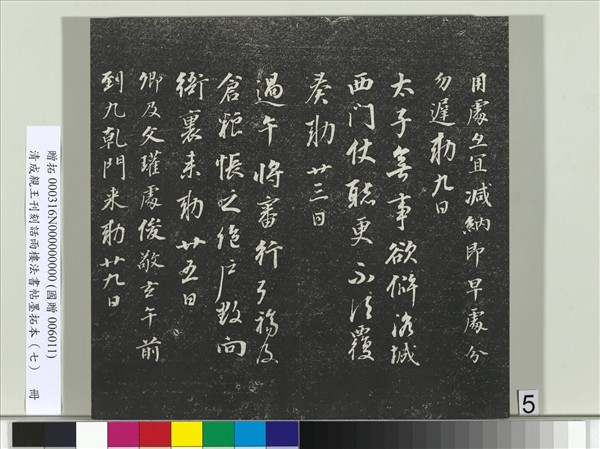 用處宜減納即早處分
勿遲勅九日
太子無事欲僻洛城
西門仗聽更不須覆
奏勅廿三日
過午將審行弓福及
倉粮帳之絶戶數向
衙裏来勅廿五日
卿及文瓘處俊敬玄午前
到九乾門来勅廿九日
贈拓 000316N000000000 (國贈 006011)
清成親王刊刻話雨樓法書帖墨拓本（七） 冊
5